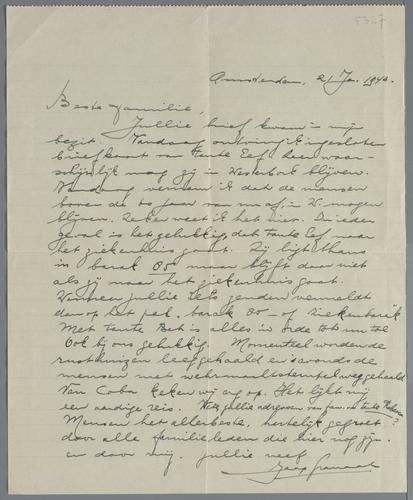 Amsterdam, 21 Jan. 1943.
Beste familie,
Jullie brief kwam in mijn
bezit. Vandaag ontving ik ingesloten
briefkaart van tante Eef heen waar-
schijnlijk mag zij in Westerbork blijven.
Vandaag vernam ik dat de mensen
boven de 60 jaar van m af, in W. mogen
blijven. Zeker weet ik het niet. In ieder
geval is het gelukkig, dat tante Eef naar
het ziekenhuis gaat. Zij ligt thans
in barak 85 maar blijft daar niet
als zij naar het ziekenhuis gaat.
Wanneer jullie iets zenden vermeldt
dan op het pak. barak 85 - of Ziekenbarak
Met tante Bet is alles in orde tot nu toe
Ook bij ons gelukkig. Momenteel worden de
rusthuizen leeggehaald en 's avonds de
mensen met wehrmachtstempel weggehaald
Van Coba keken wij erg op. Het lijkt mij
een aardige reis. jullie adressen van fam. en tante
Mensen het allerbeste, hartelijk gegroet
door alle familieleden die hier nog zijn
en door mij. jullie neef
Jaap